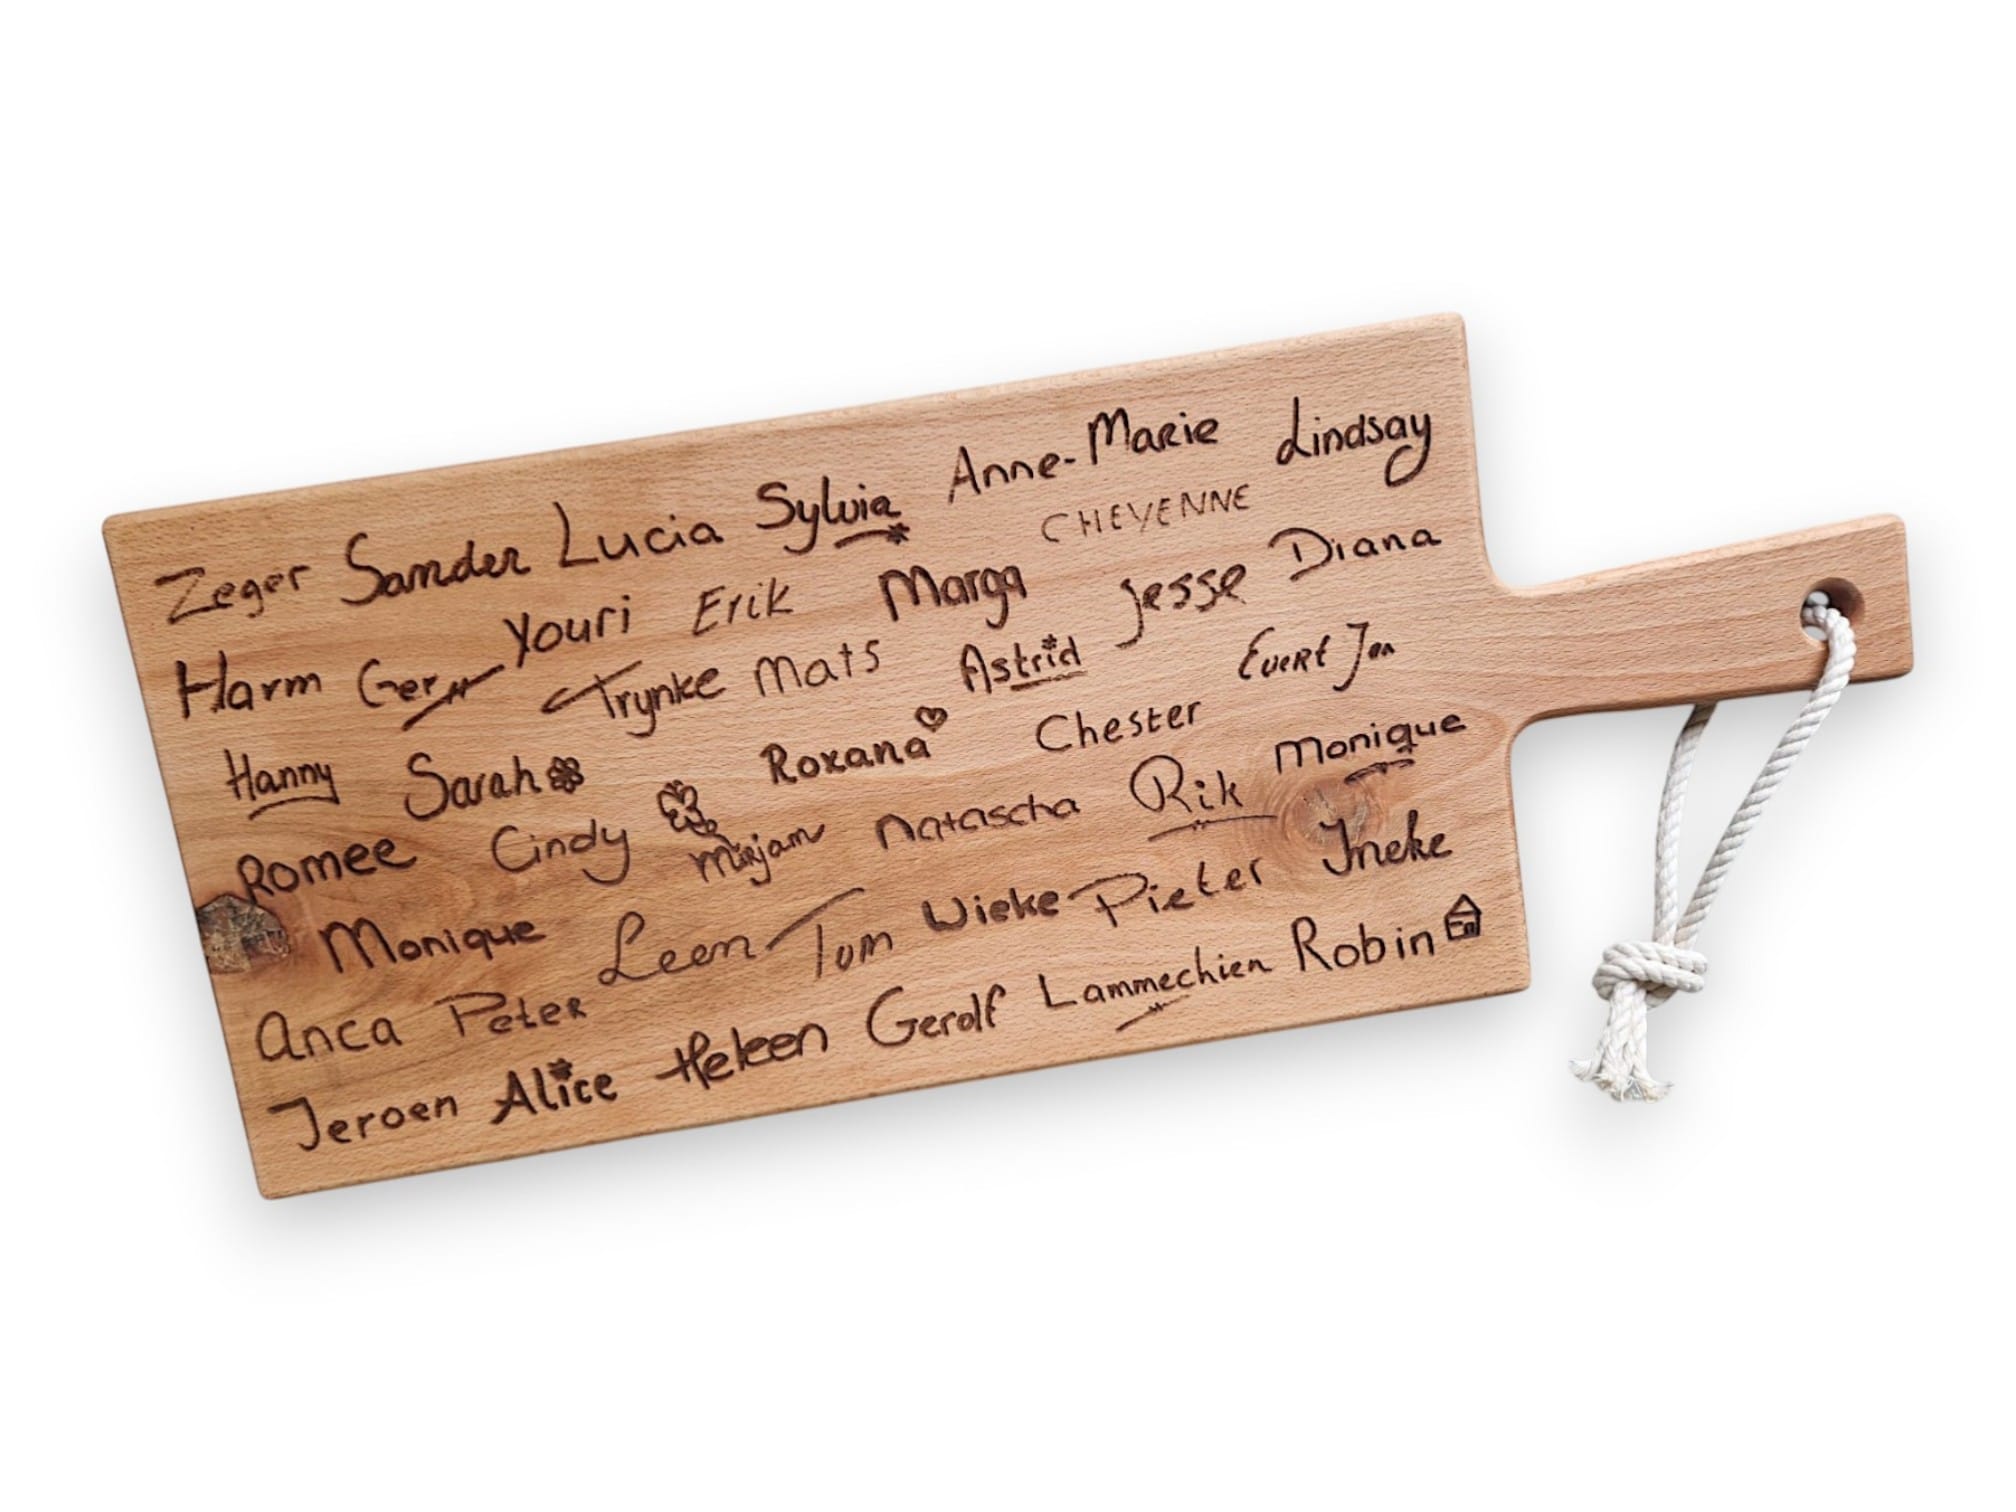 Zeger Sander Lucia Sylvia Anne-Marie Lindsay
Harm Gert Youri Erik Marga CHEYENNE Diana
Trynke Mats Astrid Jesse
Hanny Sarah Roxana Chester Evert Jan
Romee Cindy Mirjam Natascha Rik Monique
Monique Leen Tom Wieke Pieter Ineke
Anca Peter
Jeroen Alice Heleen Gerolf Lammechien Robin